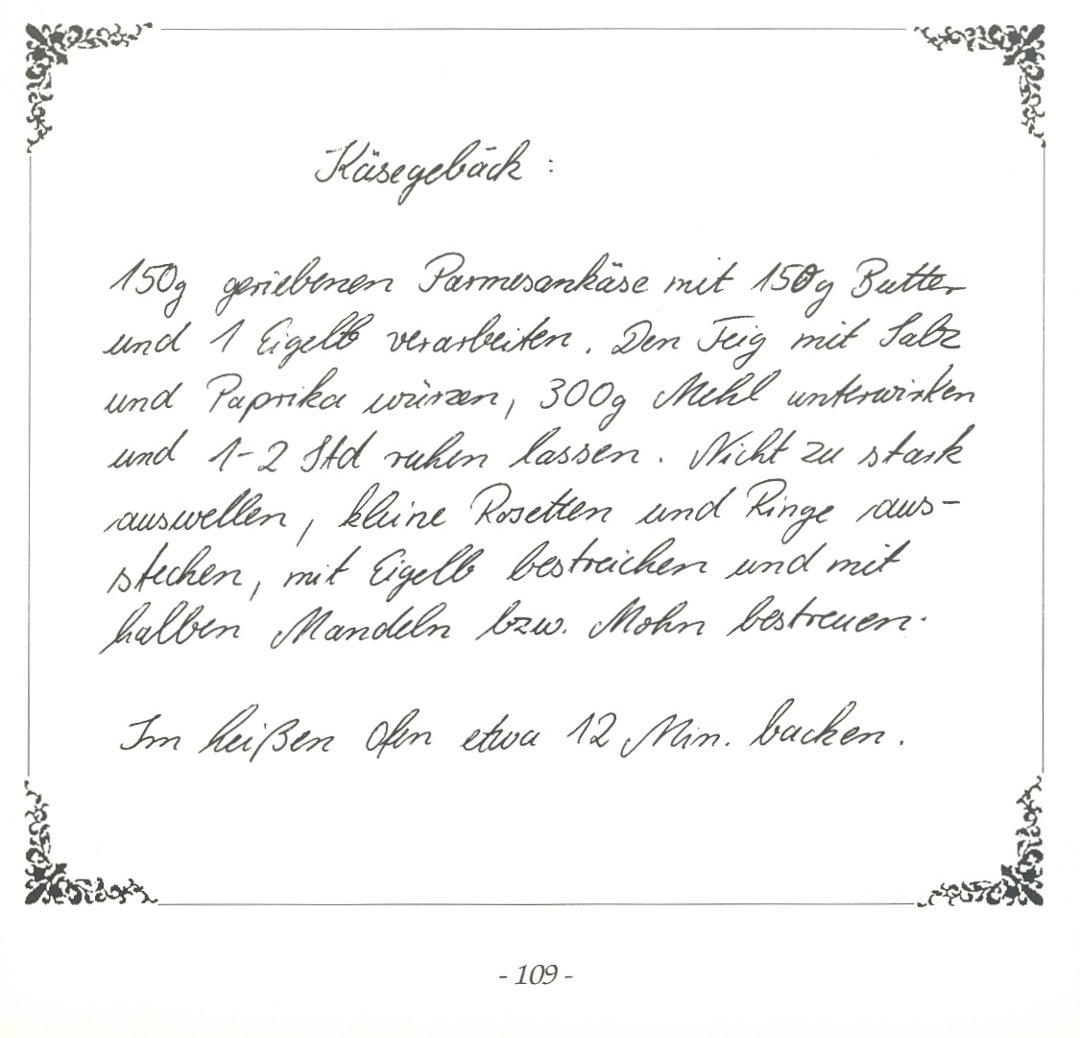 Käsegebäck :
150g geriebenen Parmesankäse mit 150g Butter
und 1 Eigelb verarbeiten. Den Teig mit Salz
und Paprika würzen, 300g Mehl unterwirken
und 1-2 Std ruhen lassen. Nicht zu stark
auswellen, kleine Rosetten und Ringe aus-
stechen, mit Eigelb bestreichen und mit
halben Mandeln bzw. Mohn bestreuen.
Im heißen Ofen etwa 12 Min. backen.
- 109 -